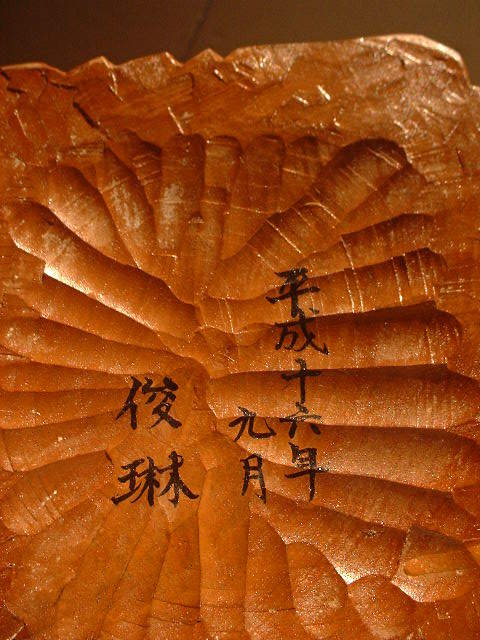 平成十六年
九月
俊琳